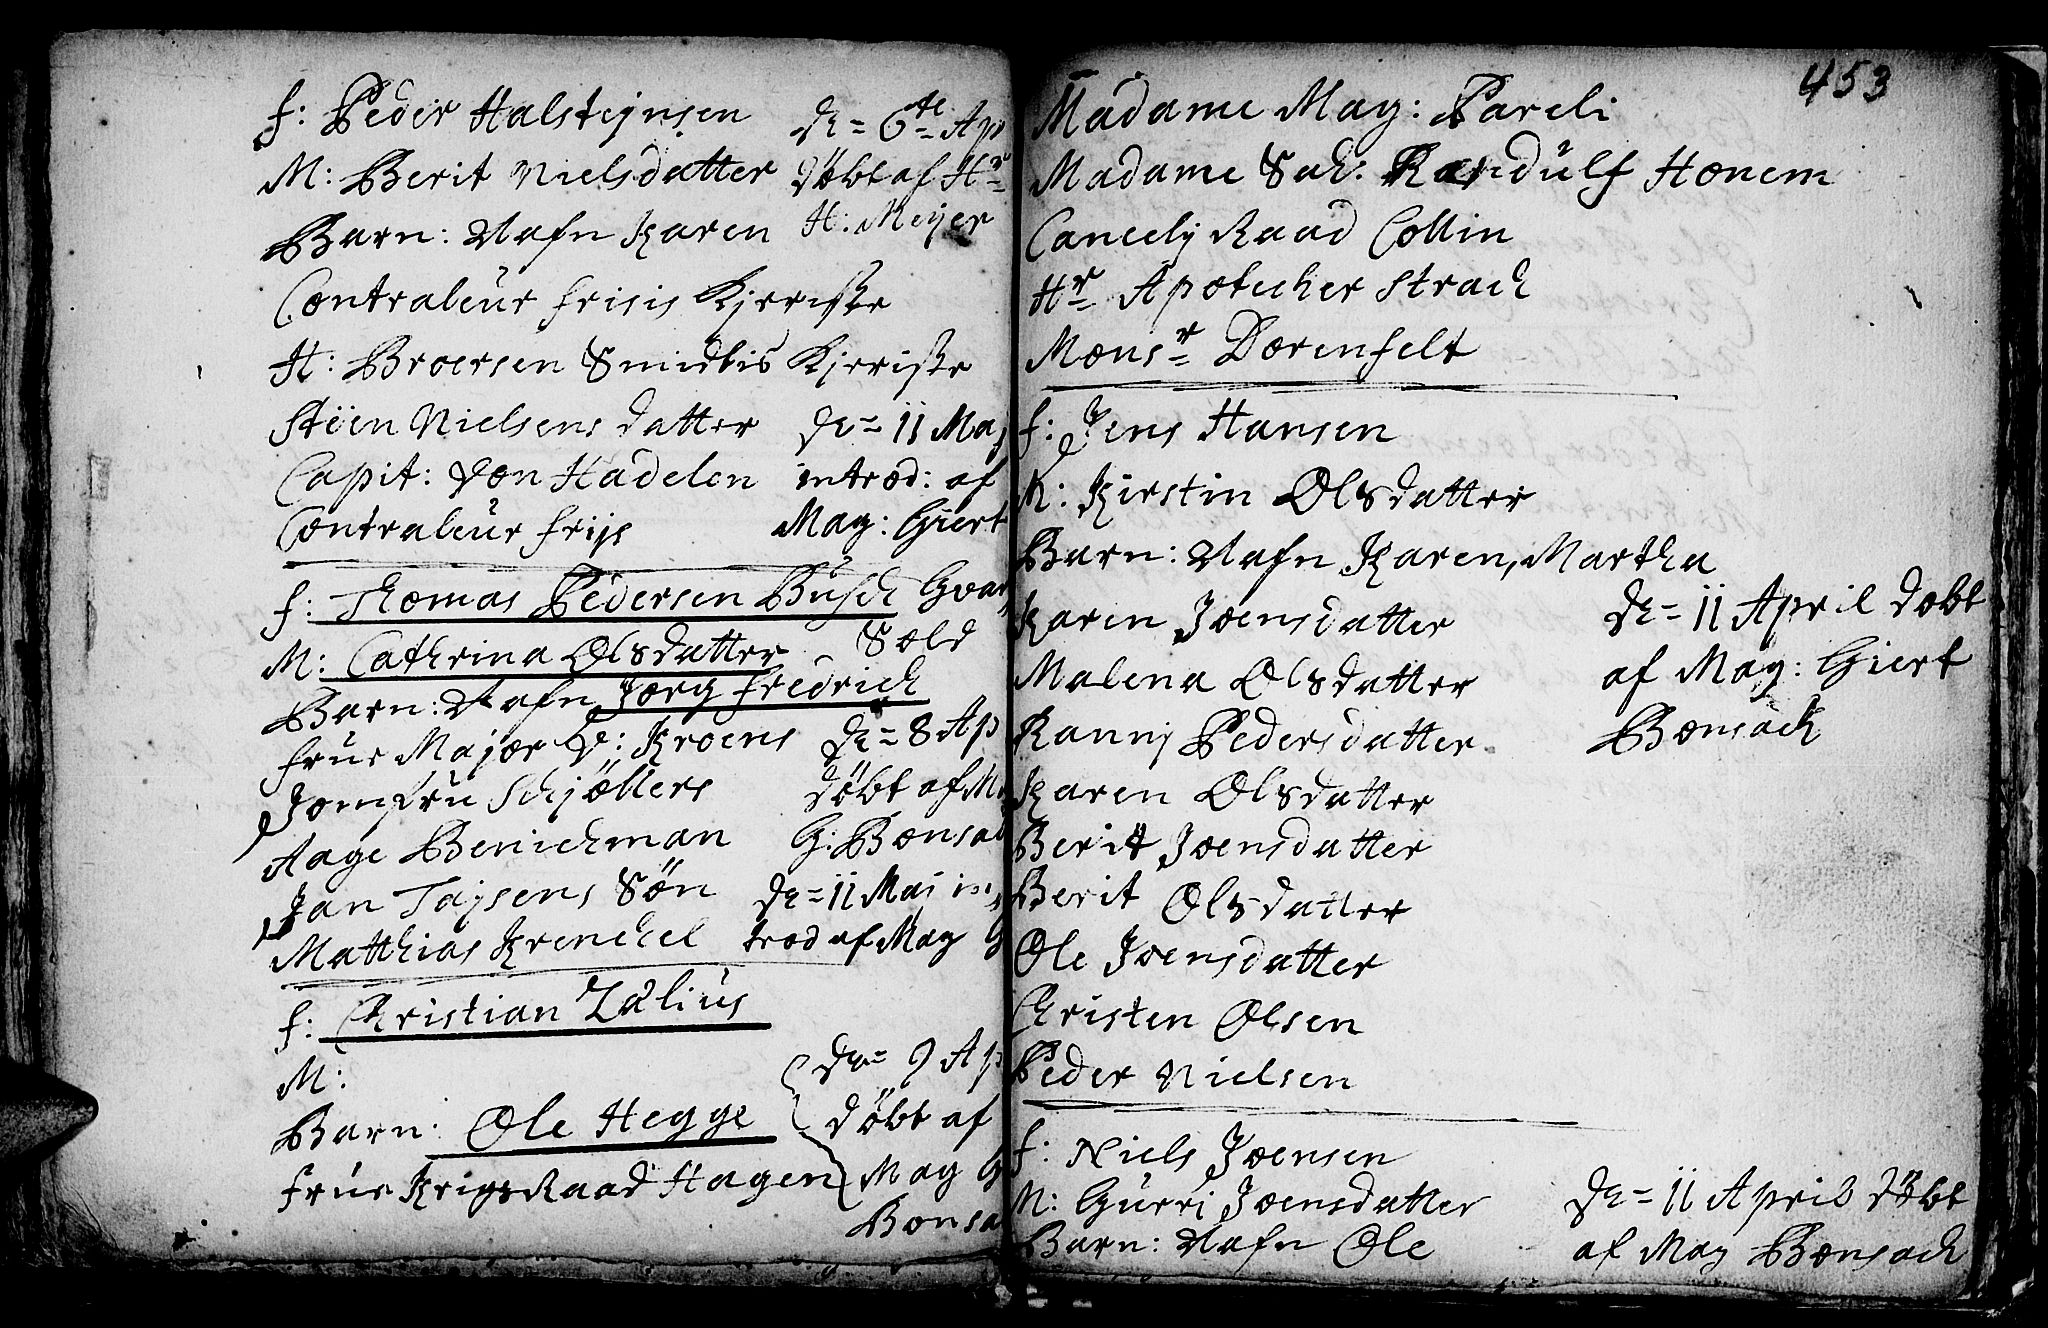 F: Peder Halstejnsen
M: Berit Nielsdatter
Barn: Nafn Karen
Contraleur Frisis Kjerriste
H: Broersen Smidtis Kjerriste
Stëen Nielsens datter
Capit: von Hadelen
Contraleur Frijs
D= 6te Ap
döbt af Hr
H: Meyer
D= 11 Maj
introd: af
Mag: Giert
F: Thomas Pedersen Busch Gvar
M: Cathrina Olsdatter Sold
Barn: Nafn Jørg Fredrich
Frue Major V: Kroens
Jomfru Schjöllers
Aage Benichman
Jan Tajsens Sön
Matthias Krenckel
D= 8 Ap
döbt af M
G: Bonsa
D= 11 Maj in
trod af Mag G
F: Christian Zølius
M:
Barn: Ole Hegge
Frue KrigsRaad Hagen
D= 9 Ap
döbt af
Mag G
Bonsa
453
Madame Mag: Pareli
Madame Sal: Randulf Honem
Cancely Raad Collin
Hr Apotecher Strach
Monsr Dorenfelt
F: Jens Hansen
M: Kirstin Olsdatter
Barn: Nafn Karen, Martha
Karen Joensdatter
Malena Olsdatter
Ranny Pedersdatter
Karen Olsdatter
Berit Joensdatter
Berit Olsdatter
Ole Joensdatter
Christen Olsen
Peder Nielsen
D= 11 April dobt
af Mag: Giert
Bonsach
F: Niels Joensen
M: Gurri Joensdatter
Barn: Nafn Ole
D= 11 April döbt
af Mag Bonsach